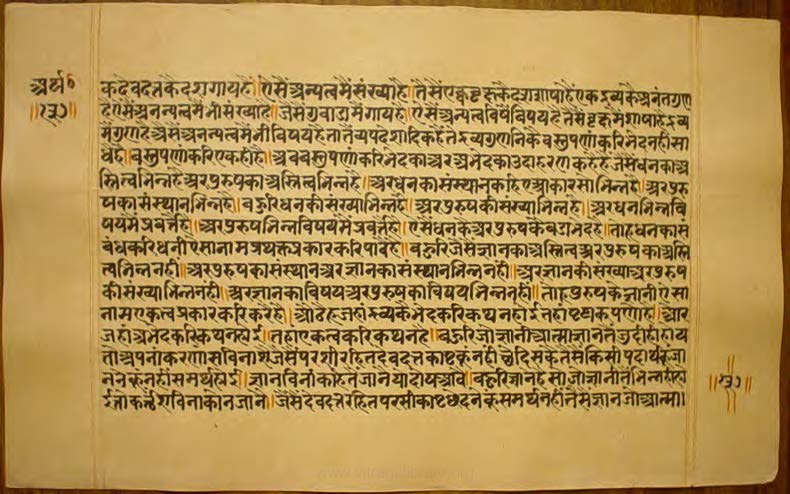 अर्थ ६
॥१३७॥
क देवदत्तकै दश गाय है। ऐसैं अन्यत्वमैं संख्या है। तैसैं एक वृक्षकै दश शाषा है एक द्रव्यकै अनंत गुण
है ऐसैं अनन्यत्वमैं भी संख्या है। जैसैं गुवाडामैं गाय है। ऐसैं अन्यत्वविषैं विषय है तैसैं वृक्षमैं शाषा है द्रव्य
मैं गुण है अैसैं अनन्यत्वमैं भी विषय है तातैं व्यपदेशादिक हैं ते द्रव्य गुणनिकै वस्तुपणांकरि भेद नहीं सा
धै है। वस्तुपणांकरि एक ही है। अब वस्तुपणांकरि भेदका अर अभेदका उदाहरण कहै है जैसैं धनका अ
स्तित्व भिन्न है अर पुरुषका अस्तित्व भिन्न है। अर धनका संस्थान कहिए आकार सो भिन्न है। अर पुरु
षका संस्थान भिन्न है। बहुरि धनकी संख्या भिन्न है। अर पुरुषकी संख्या भिन्न है। अर धन भिन्न वि
षयमैं प्रवर्तै है। अर पुरुष भिन्न विषयमैं प्रवर्तै है। ऐसैं धनकै अर पुरुषकै बडा भेद है। तोहू धनका सं
बंधकरि धनी ऐसा नाम प्रथक्त प्रकारकरि पावै है। बहुरि जैसैं ज्ञानका अस्तित्व अर पुरुषका अस्ति
त्व भिन्न नहीं। अर पुरुषका संस्थान अर ज्ञानका संस्थान भिन्न नहीं। अर ज्ञानकी संख्या अर पुरुष
की संख्या भिन्न नहीं। अर ज्ञानका विषय अर पुरुषका विषय भिन्न नहीं। तोहू पुरुषकै ज्ञानी ऐसा
नाम एकत्व प्रकारकरि करै है। जहां द्रव्यकै भेदकरि कथन होई तहां पृथक्पणां है। और
जहां अभेदकरि कथन होई। तहां एकत्वकरि कथन है। बहुरि जो ज्ञानी आत्मा ज्ञानतैं जुदा ही होय
तो अपनी करण विना जैसैं परशी रहित देवदत्त काष्टकूं नही छेदि सकै तैसैं किसी पदार्थकूं जा
ननकूं नही समर्थ होई। ज्ञान विना काहेतैं जानै या दोष आवै। बहुरि ज्ञान है सो जो ज्ञानीतैं भिन्न हो
ई तो कर्त्ता विना को न जानै। जैसैं देवदत्त रहित परसी काष्ट छेदनकूं समर्थ नही तैसैं ज्ञान जो आत्मा।
॥१३७॥